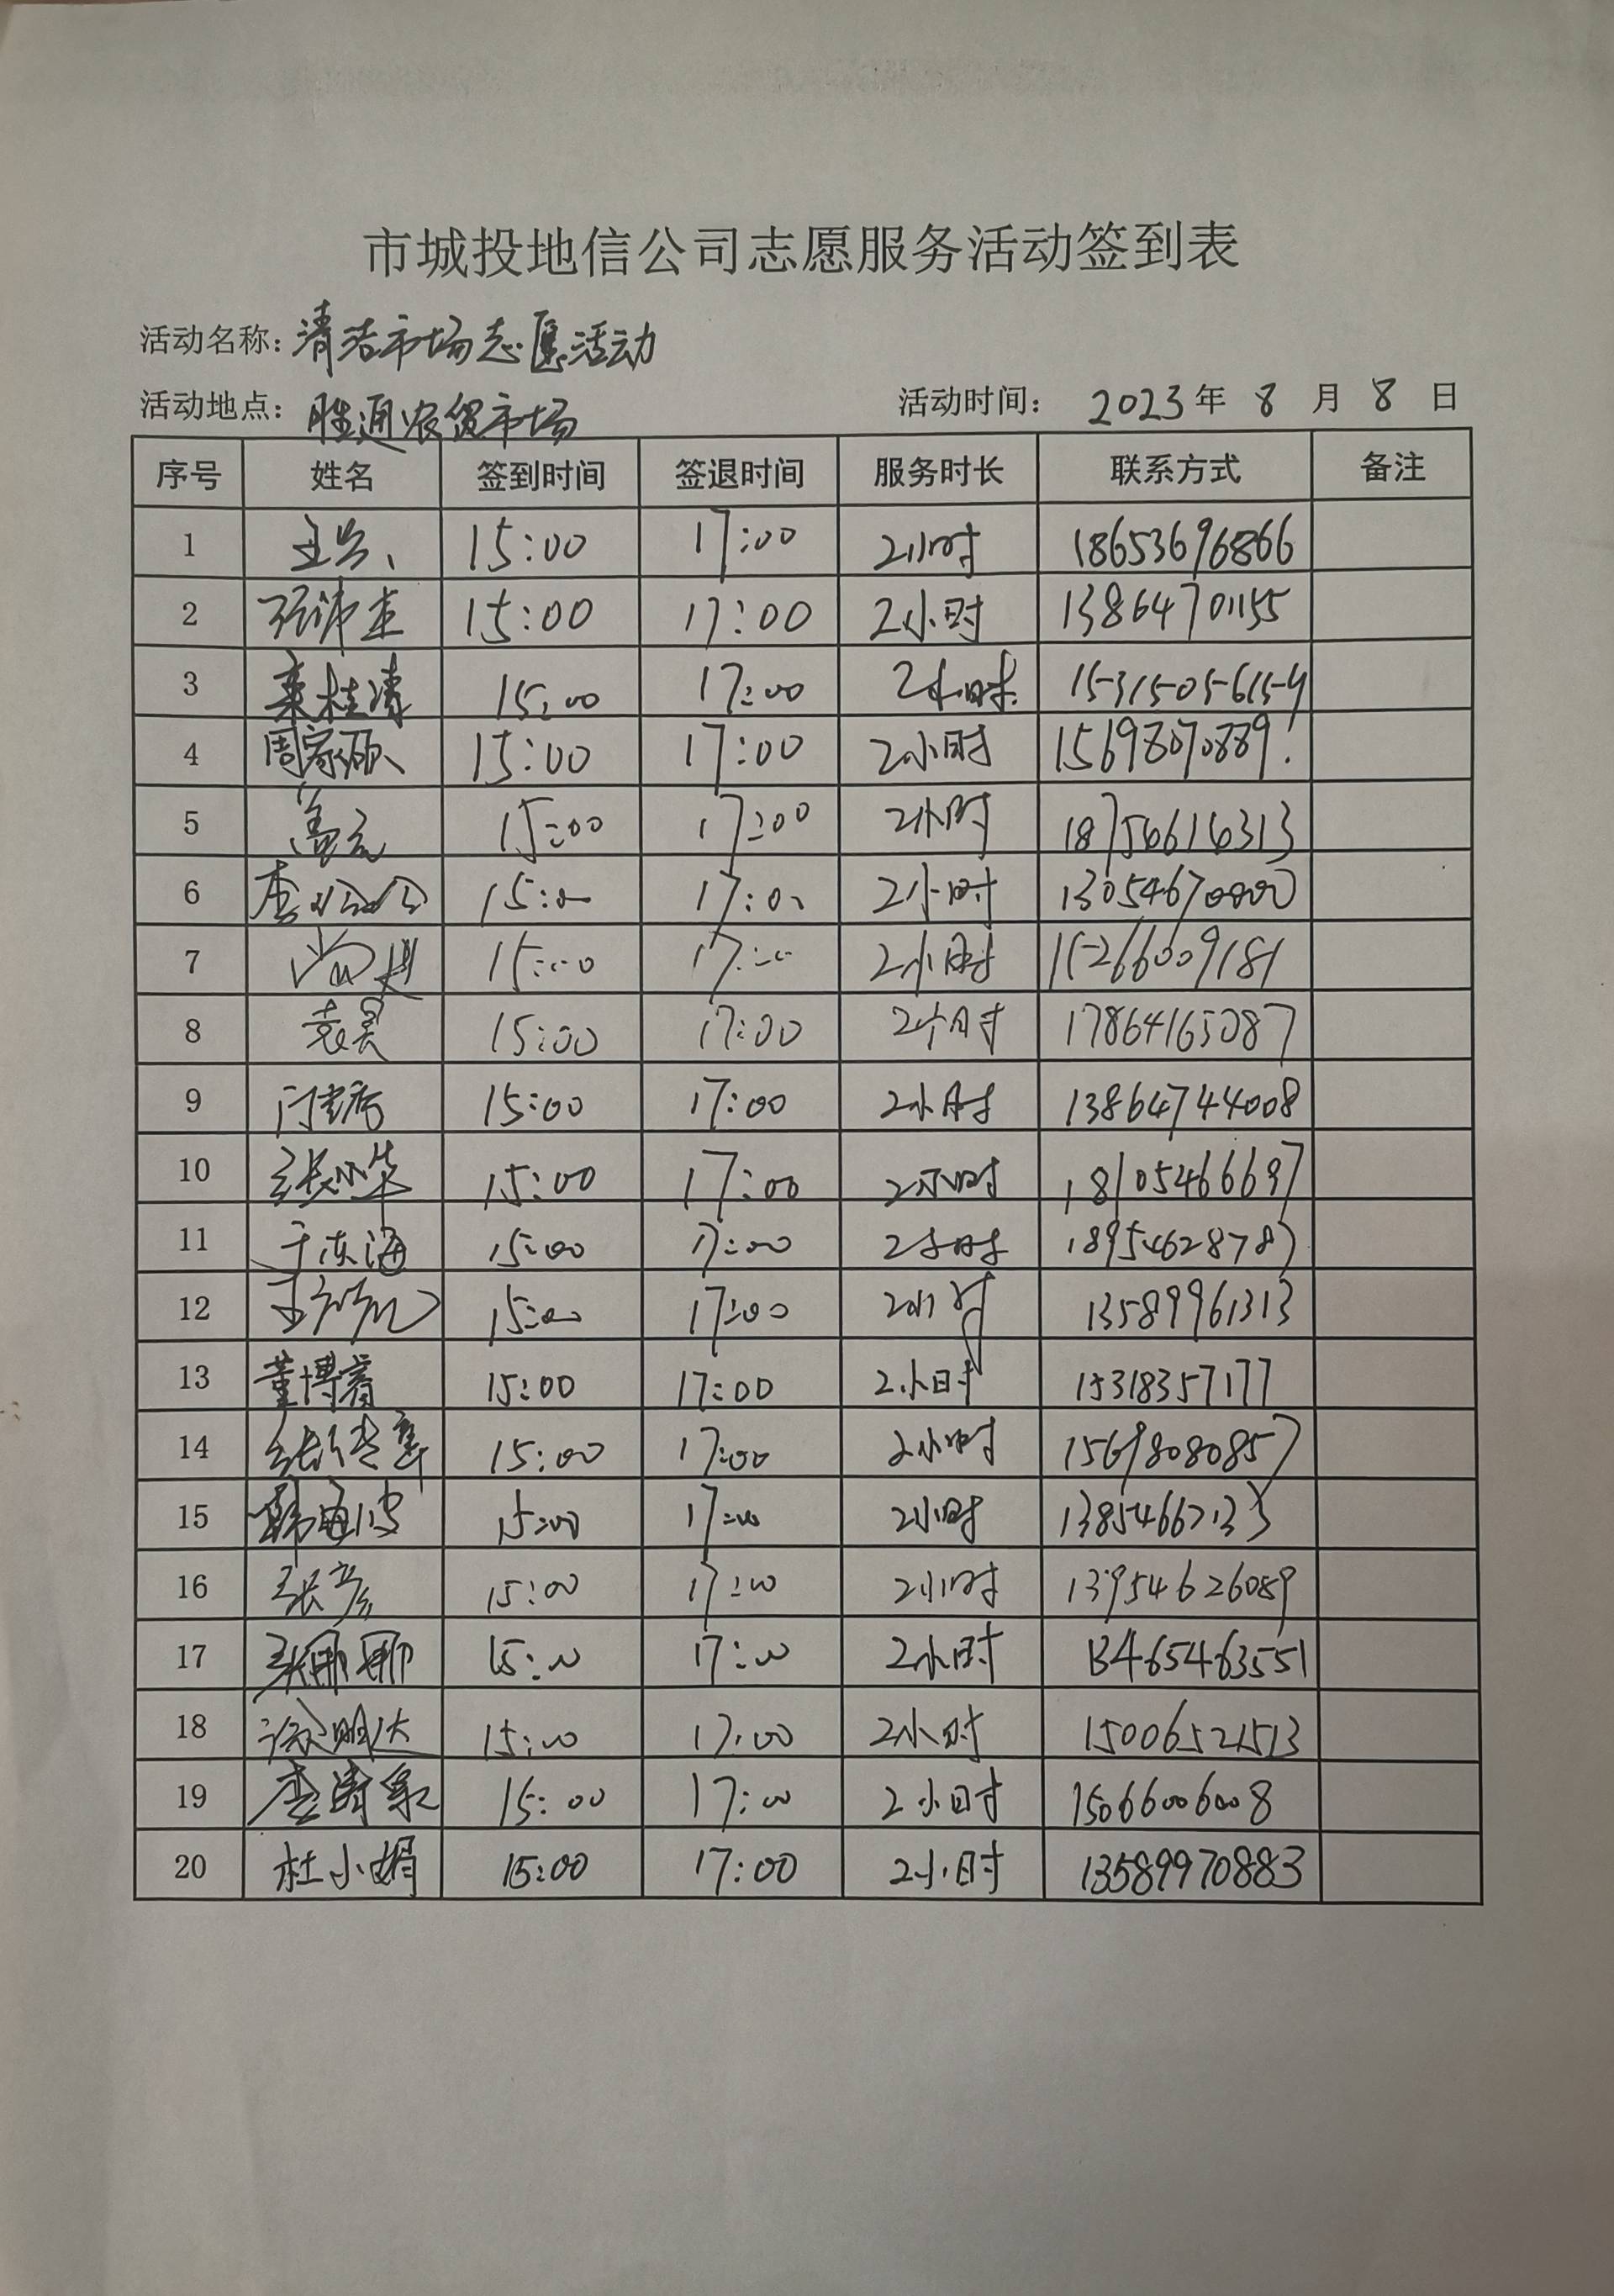 市城投地信公司志愿服务活动签到表
活动名称: 清洁市场志愿活动
活动地点: 胜通农贸市场 活动时间: 2023 年 8 月 8 日
序号 姓名 签到时间 签退时间 服务时长 联系方式 备注
1 15:00 17:00 2小时 18653696866
2 15:00 17:00 2小时 13864701155
3 栾桂清 15:00 17:00 2小时 15315056154
4 周家硕 15:00 17:00 2小时 15698070889
5 盖云 15:00 17:00 2小时 18754614313
6 15:00 17:00 2小时
7 尚进 15:00 17:00 2小时 15266009181
8 袁昊 15:00 17:00 2小时 17864165087
9 15:00 17:00 2小时 13864744008
10 张小华 15:00 17:00 2小时 18105466697
11 于东海 15:00 17:00 2小时 18954628787
12 15:00 17:00 2小时 13589961313
13 董博睿 15:00 17:00 2小时 15318357177
14 15:00 17:00 2小时 15698080857
15 韩海波 15:00 17:00 2小时
16 张彦 15:00 17:00 2小时 13954626089
17 张娜娜 15:00 17:00 2小时 13465463551
18 徐明达 15:00 17:00 2小时 15006521513
19 15:00 17:00 2小时 15066006008
20 杜小娟 15:00 17:00 2小时 13589970883